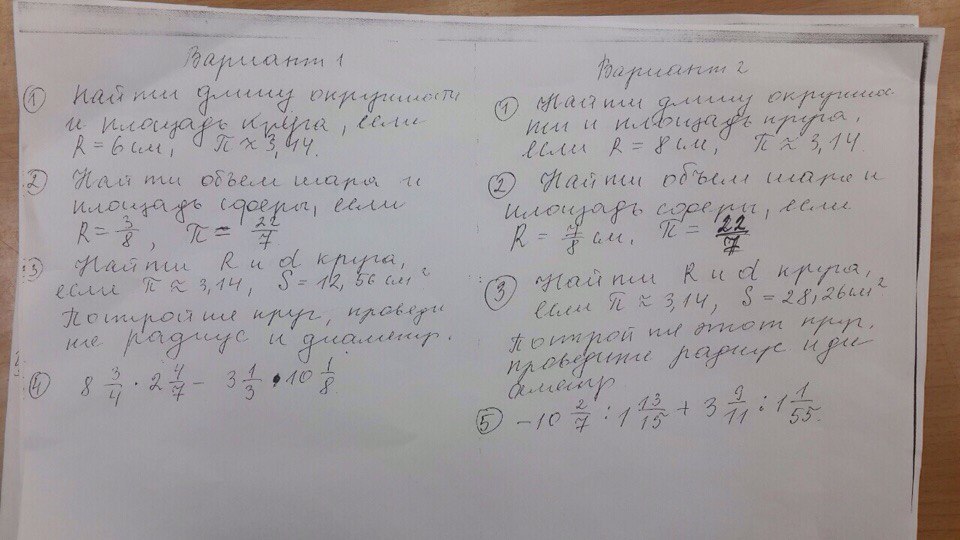 Вариант 1
① Найти длину окружности
и площадь круга, если
R = 6 см, П ≈ 3,14.
② Найти объем шара и
площадь сферы, если
R = 3/8, П = 22/7
③ Найти R и d круга,
если П ≈ 3,14, S = 12,56 см²
Постройте круг, проведи
те радиус и диаметр.
④ 8 3/4 · 2 4/7 − 3 1/3 · 10 1/8
Вариант 2
① Найти длину окружнос
ти и площадь круга,
если R = 8 см, П ≈ 3,14
② Найти объем шара и
площадь сферы, если
R = 7/8 см, П = 22/7
③ Найти R и d круга,
если П ≈ 3,14, S = 28,26 см²
Постройте этот круг,
проведите радиус и ди
аметр
⑤ −10 2/7 : 1 13/15 + 3 9/11 : 1 1/55.